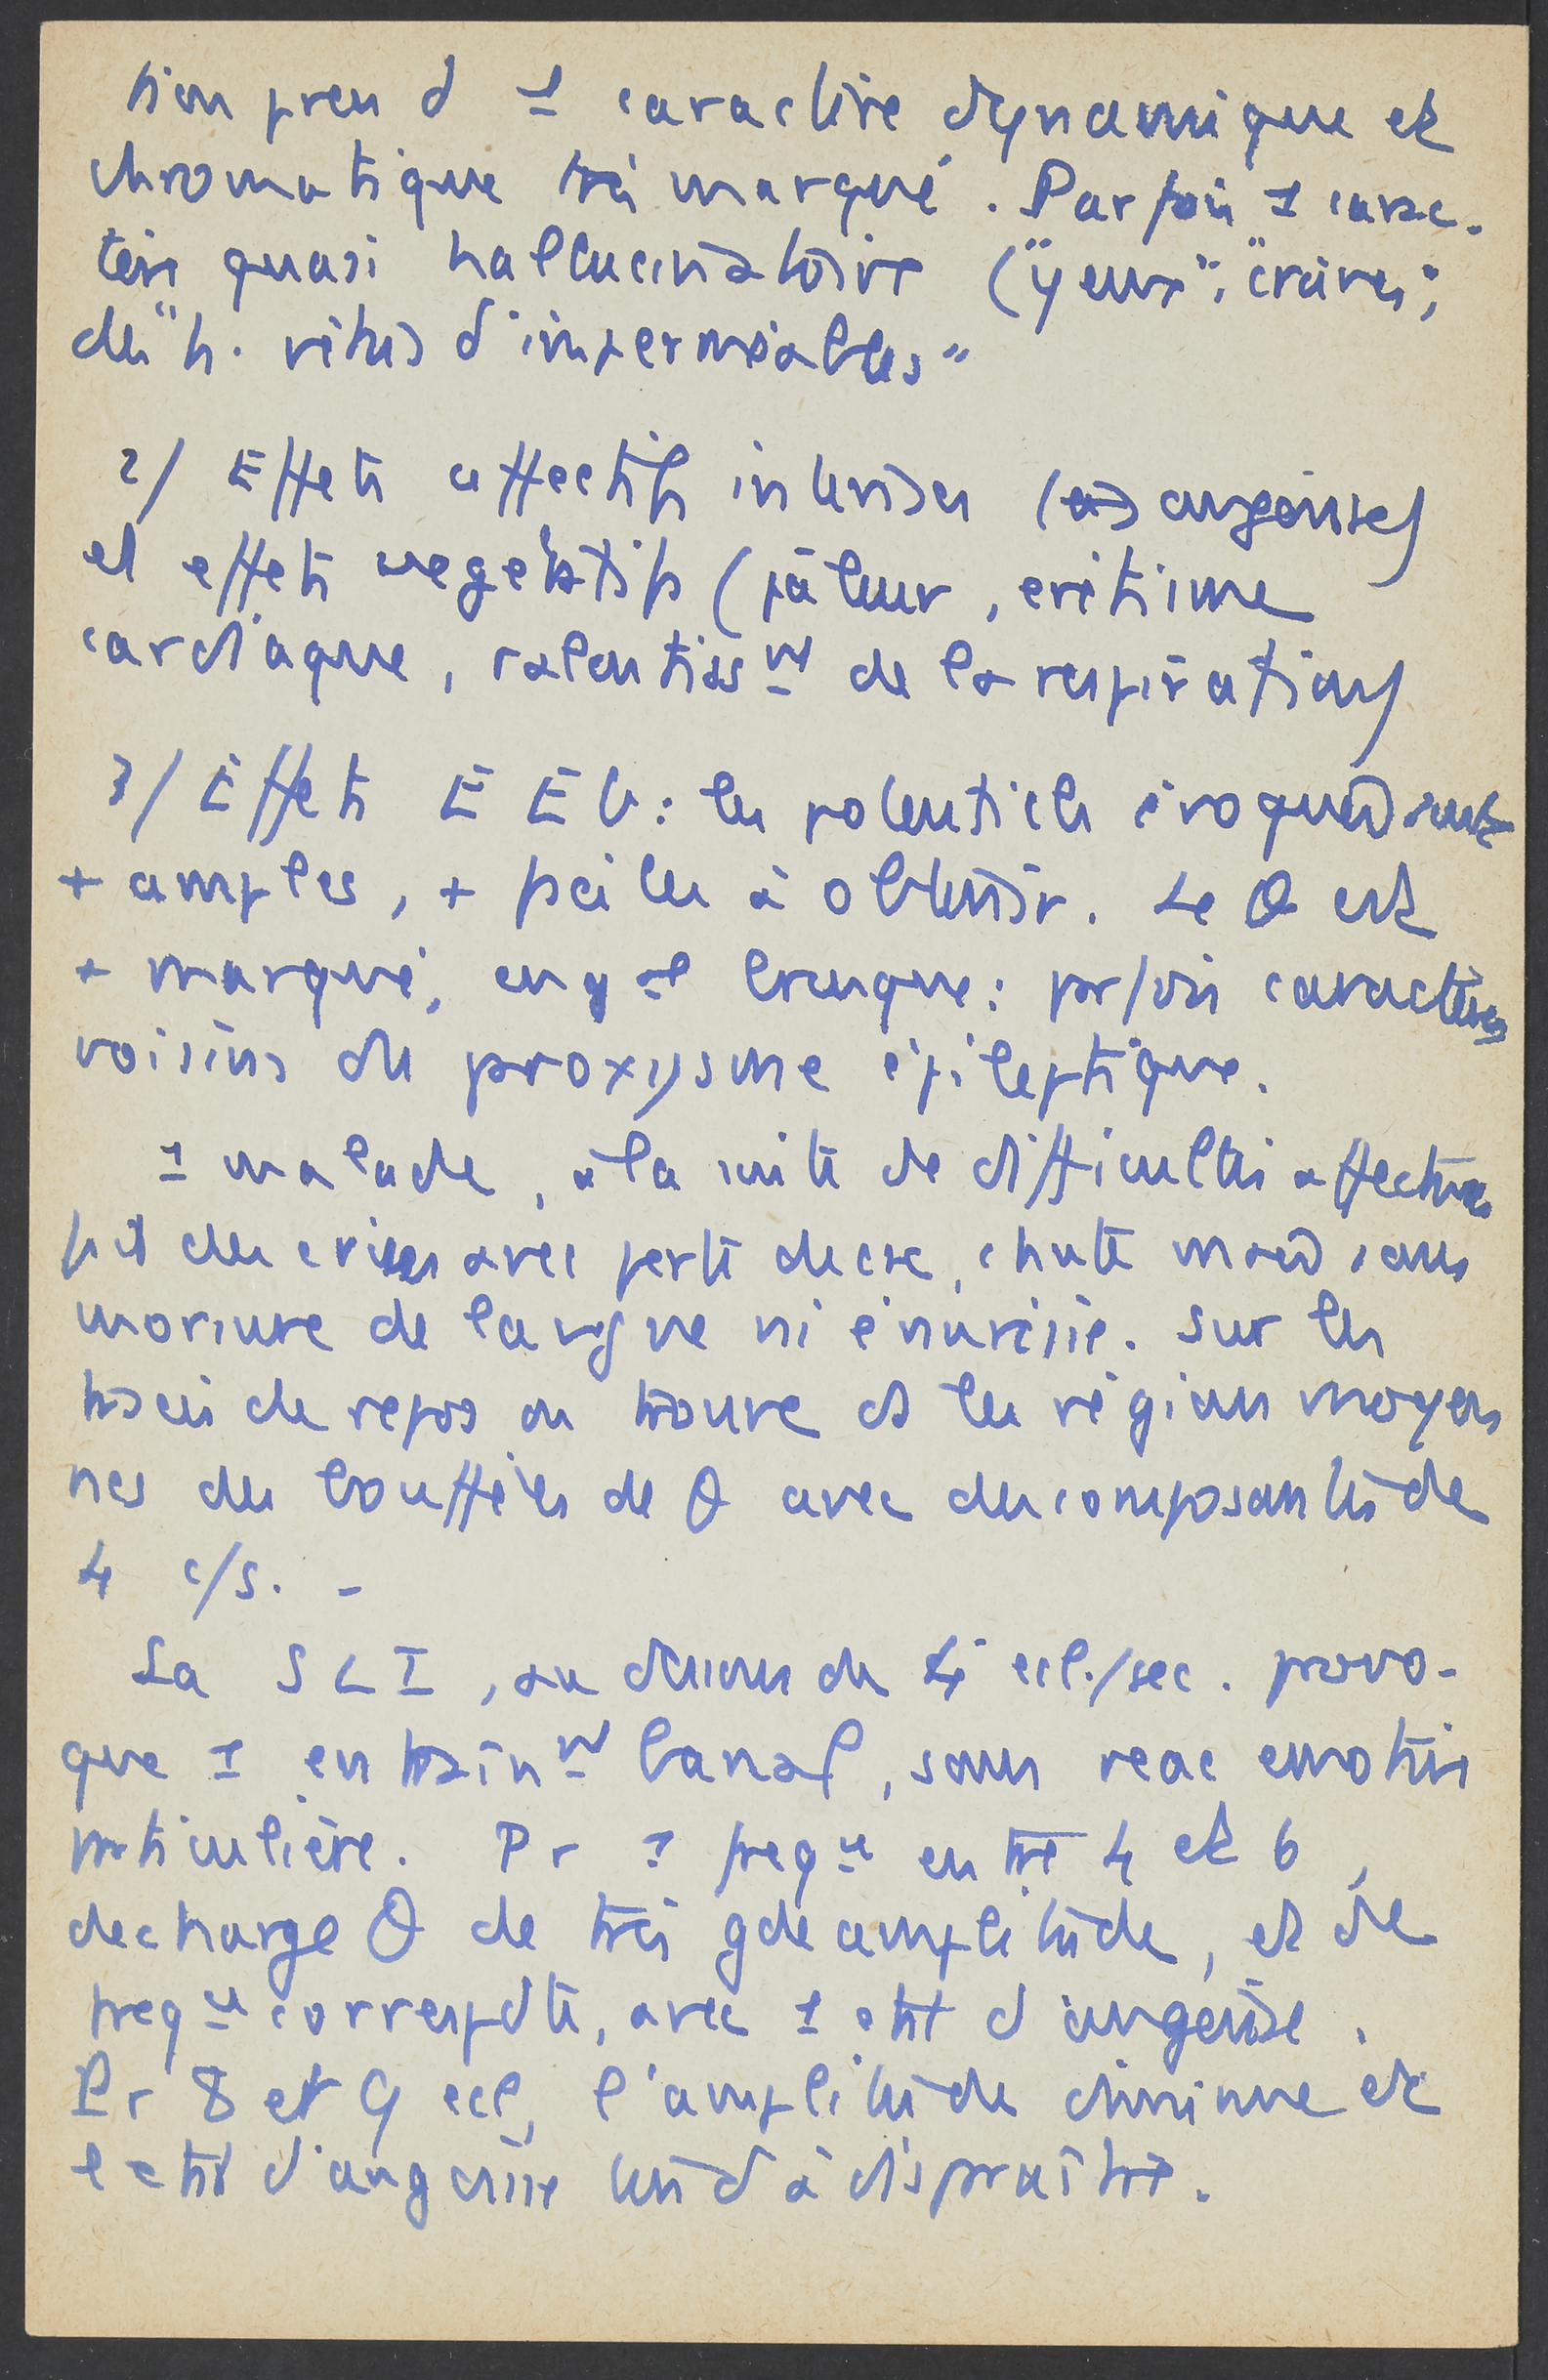 tion prend 1 caractère dynamique et
chromatique très marqué. Parfois 1 carac-
tère quasi hallucinatoire ("yeux", "crânes",
des "h. vêtus d'imperméables"
2/ Effets affectifs intenses (angoisse)
et effets vegetatifs (pâleur, eréthisme
cardiaque, ralentissmt de la respiration)
3/ Effets EEG : les potentiels évoqués sont
+ amples, + faciles à obtenir. Le θ est
+ marqué, en gal brusque : parfois caractères
voisins du paroxysme épileptique.
1 malade, à la suite de difficultés affectives
fait des crises avec perte de csc, chute mais sans
morsure de langue ni énurésie. Sur les
tracés de repos on trouve ds les régions moyen
nes des bouffées de θ avec des composantes de
4 c/s. -
La SLI, au dessous de 4 ecl./sec. provo-
que 1 entrainmt banal, sans reac emotive
particulière. Pr 1 freqce entre 4 et 6,
decharge θ de très gde amplitude, et de
freqce correspdte, avec 1 état d'angoisse.
Pr 8 et 9 ecl, l'amplitude diminue et
l'état d'angoisse tend à disparaître.